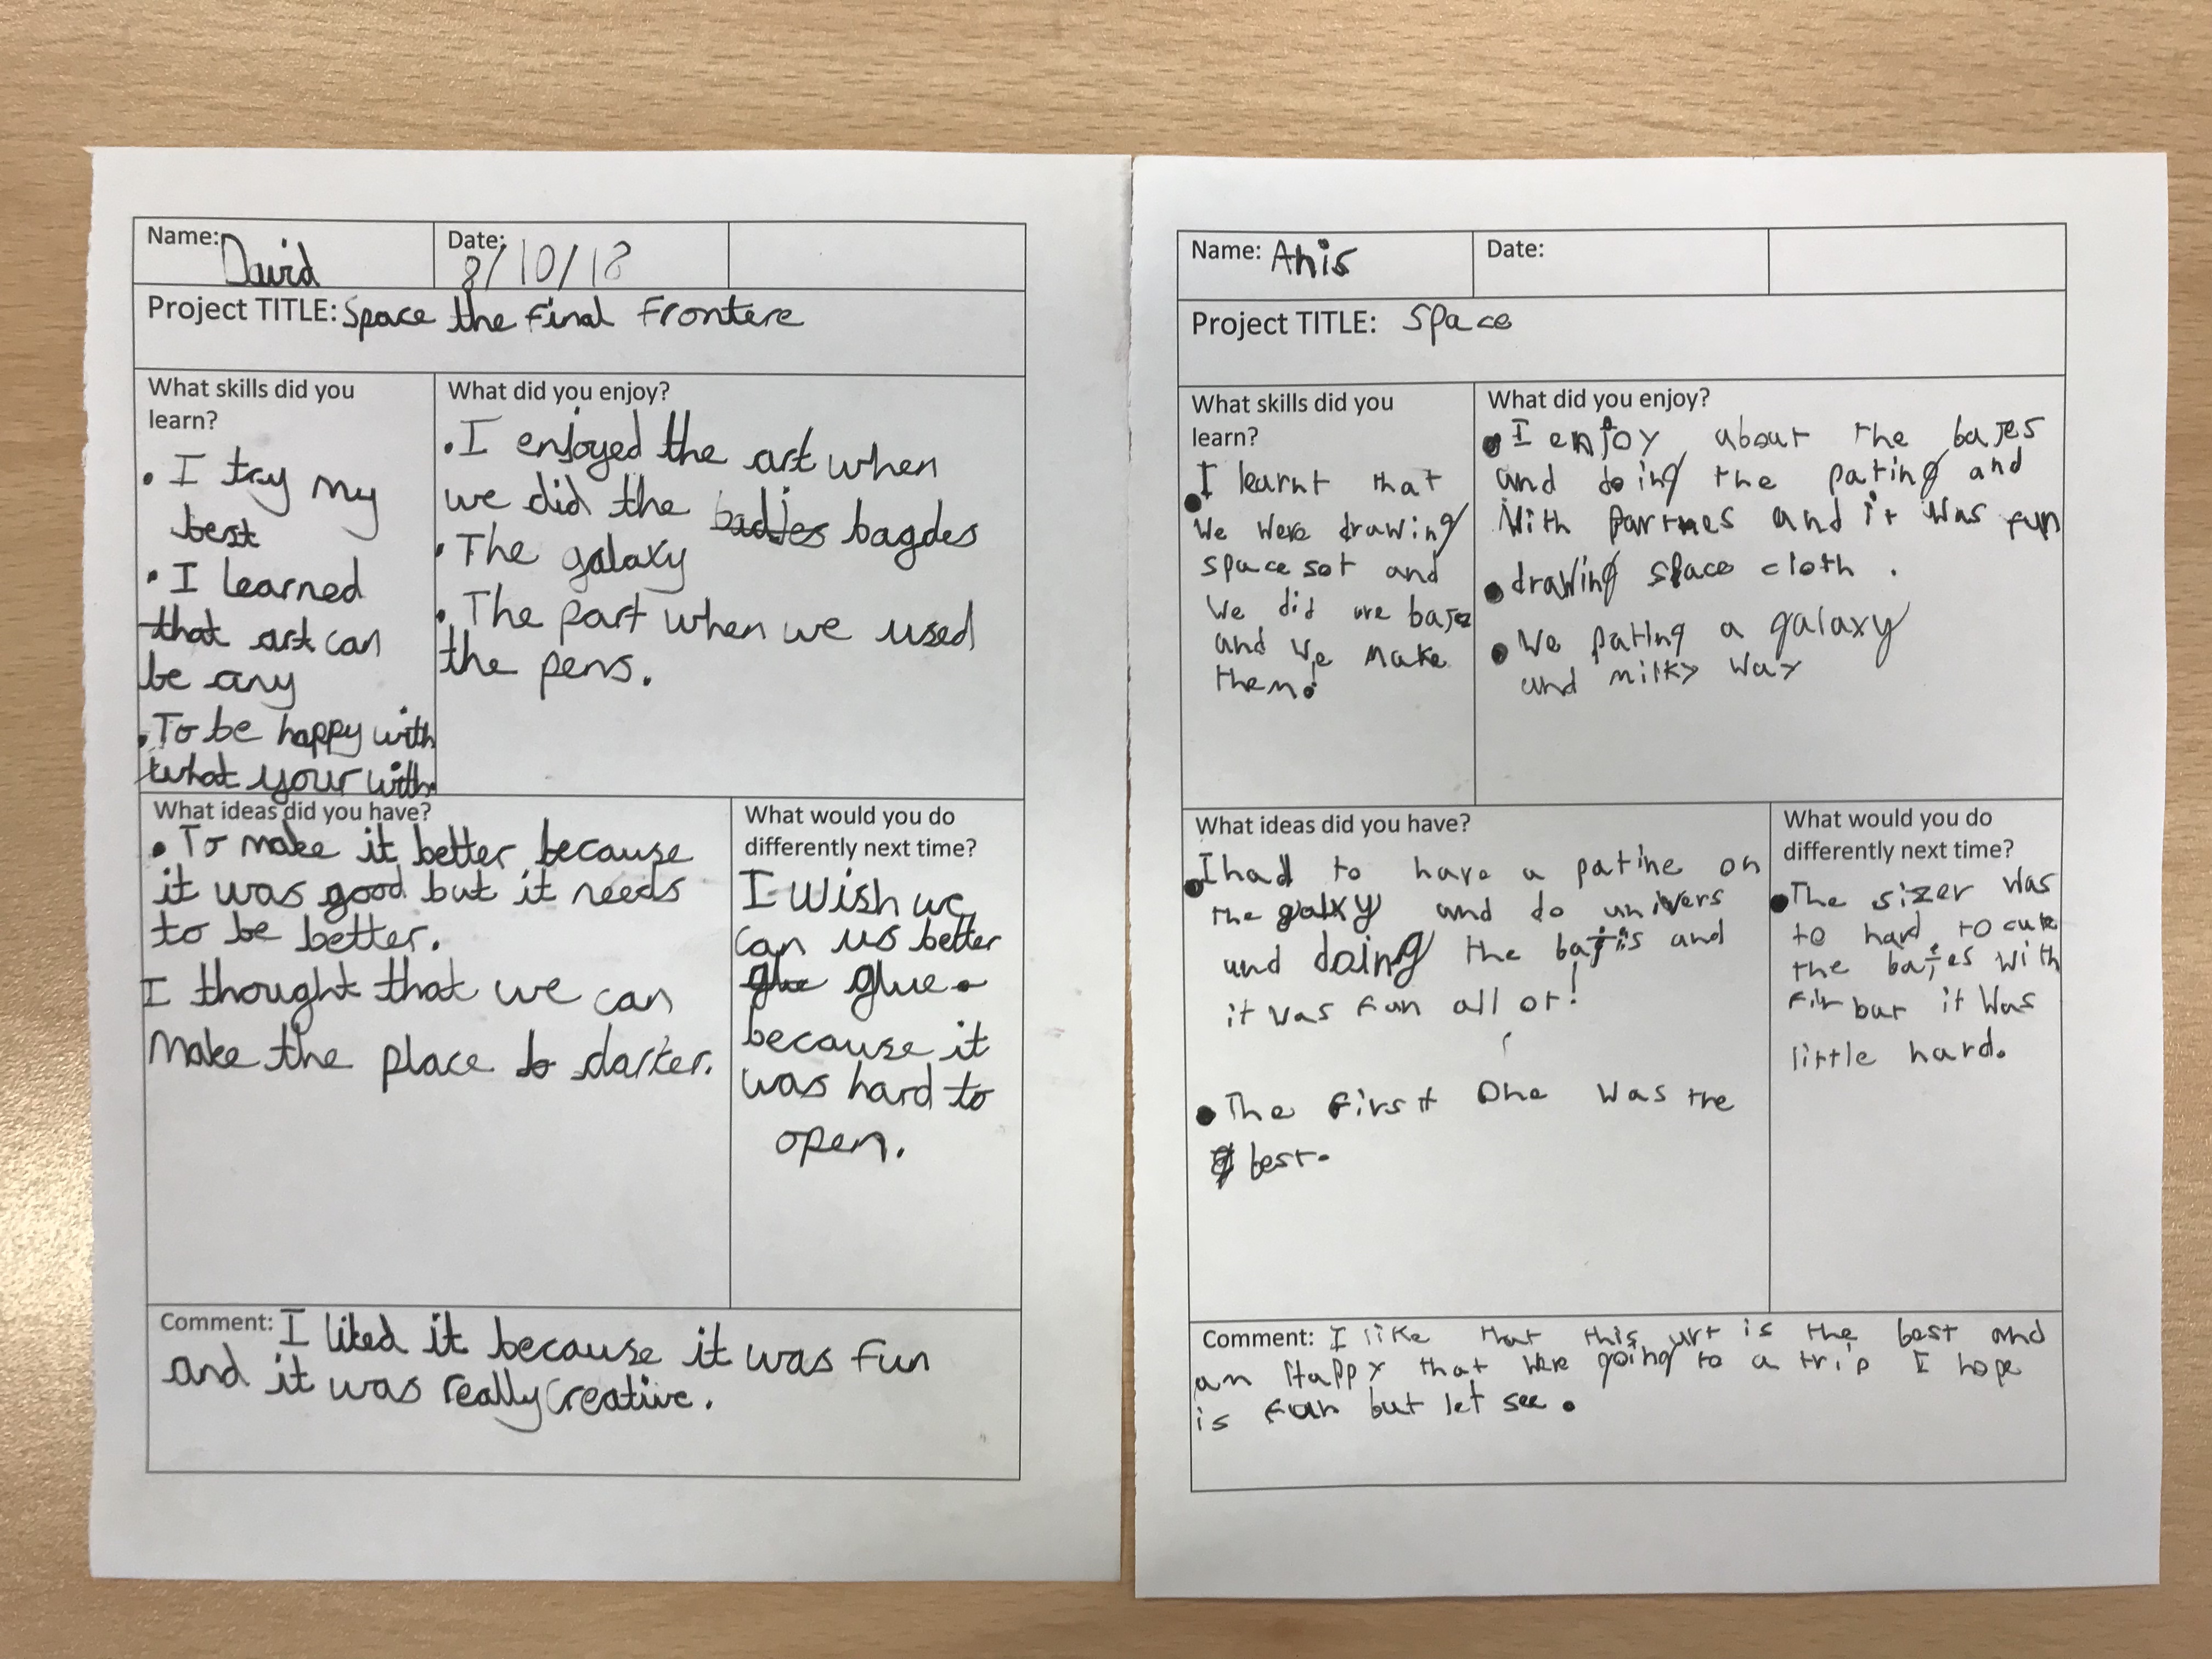 Name: David
Date: 8/10/18
Project TITLE: Space the Final Frontere
What skills did you
learn?
• I try my
best
• I learned
that art can
be any
• To be happy with
what your with.
What did you enjoy?
• I enjoyed the art when
we did the badjes bagdes
• The galaxy
• The part when we used
the pens.
What ideas did you have?
• To make it better because
it was good but it needs
to be better.
I thought that we can
make the place darker.
What would you do
differently next time?
I wish we
can us better
glue glue
because it
was hard to
open.
Comment: I liked it because it was fun
and it was really creative.
Name: Anis
Date:
Project TITLE: Space
What skills did you
learn?
• I learnt that
we were drawing
space sot and
we did are bajes
and we make
them!
What did you enjoy?
• I enjoy about the bajes
and doing the pating and
with partnes and it was fun
• drawing space cloth.
• we pating a galaxy
and milky way
What ideas did you have?
• I had to have a patine on
the galxy and do univers
and doing the bajis and
it was fun all or!
• The first one was the
best.
What would you do
differently next time?
• The sizer was
to hard to cute
the bajes with
but it was
little hard.
Comment: I like that this art is the best and
an Happy that were going to a trip I hope
is fun but let see.